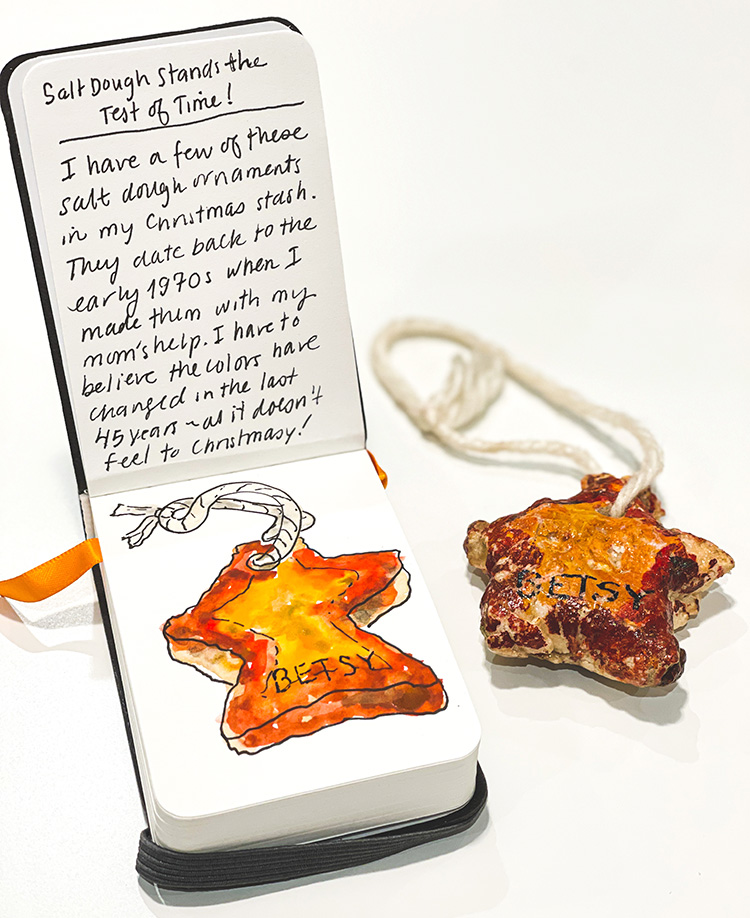 Salt Dough Stands the
Test of Time!
I have a few of these
salt dough ornaments
in my Christmas stash.
They date back to the
early 1970s when I
made them with my
mom's help. I have to
believe the colors have
changed in the last
45 years ~ as it doesn't
feel to Christmasy!
BETSY
BETSY